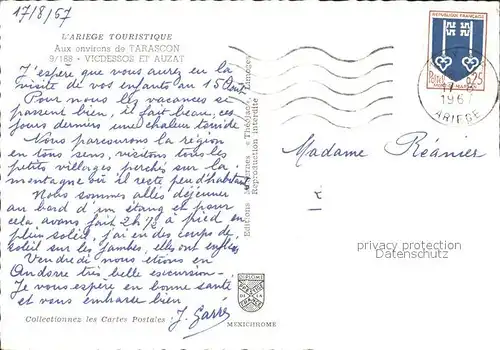 17/8/67
L'ARIEGE TOURISTIQUE
Aux environs de TARASCON
9/168 - VICDESSOS ET AUZAT
J'espère que vous aurez eu la
visite de vos enfants au 15 Août
Pour nous les vacances se
passent bien, il fait beau, ces
jours derniers une chaleur torride
Nous parcourons la région
en tous sens, visitons tous les
petits villages perchés sur la
montagne où il reste peu d'habitant
Nous sommes allés déjeuner
au bord d'un étang et pour
cela avons fait 2h ½ à pied en
plein soleil, j'ai eu des coups de
soleil sur les jambes, elles ont enflés
Vendredi nous étions en
Andorre très belle excursion.
Je vous espère en bonne santé
et vous embrasse bien
J. Garré
Collectionnez les Cartes Postales
MEXICHROME
Editions « Théojac », Limoges
Reproduction interdite
REPUBLIQUE FRANÇAISE
0,25
MONT-DE-MARSAN
1967
ARIEGE
Madame Régnier
privacy protection
Datenschutz